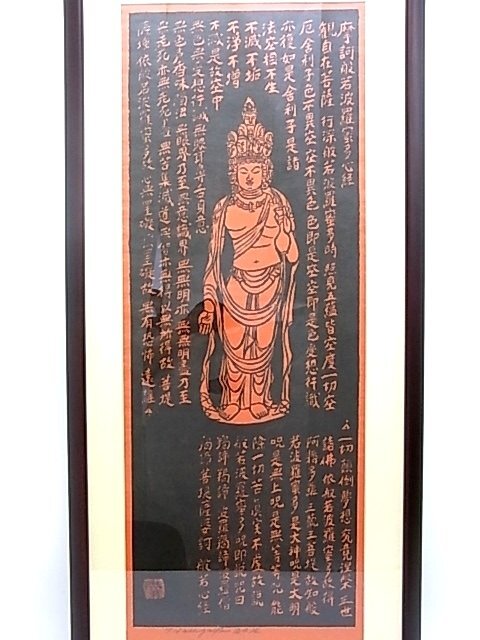 摩訶般若波羅蜜多心経
觀自在菩薩 行深般若波羅蜜多時 照見五蘊皆空度一切苦
厄舎利子色不異空空不異色色即是空空即是色受想行識
亦復如是舎利子是諸
法空相不生
不滅不垢
不浄不増
不減是故空中
無色無受想行識無眼耳鼻舌身意
無色声香味触法無眼界乃至無意識界無無明亦無無明尽乃至
無老死亦無老死尽無苦集滅道無智亦無得以無所得故菩提
薩埵依般若波羅蜜多故心無罣礙無罣礙故無有恐怖遠離
一切顛倒夢想究竟涅槃三世
諸佛依般若波羅蜜多故得
阿耨多羅三藐三菩提故知般
若波羅蜜多是大神呪是大明
呪是無上呪是無等等呪能
除一切苦真実不虚故説
般若波羅蜜多呪即説呪曰
羯諦羯諦波羅羯諦波羅僧
羯諦菩提薩婆訶 般若心経